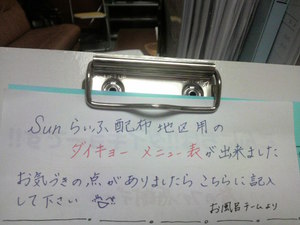 Sun らいふ配布地区用の
ダイキョー メニュー表が出来ました
お気づきの点がありましたらこちらに記入
して下さい
お風呂チームより